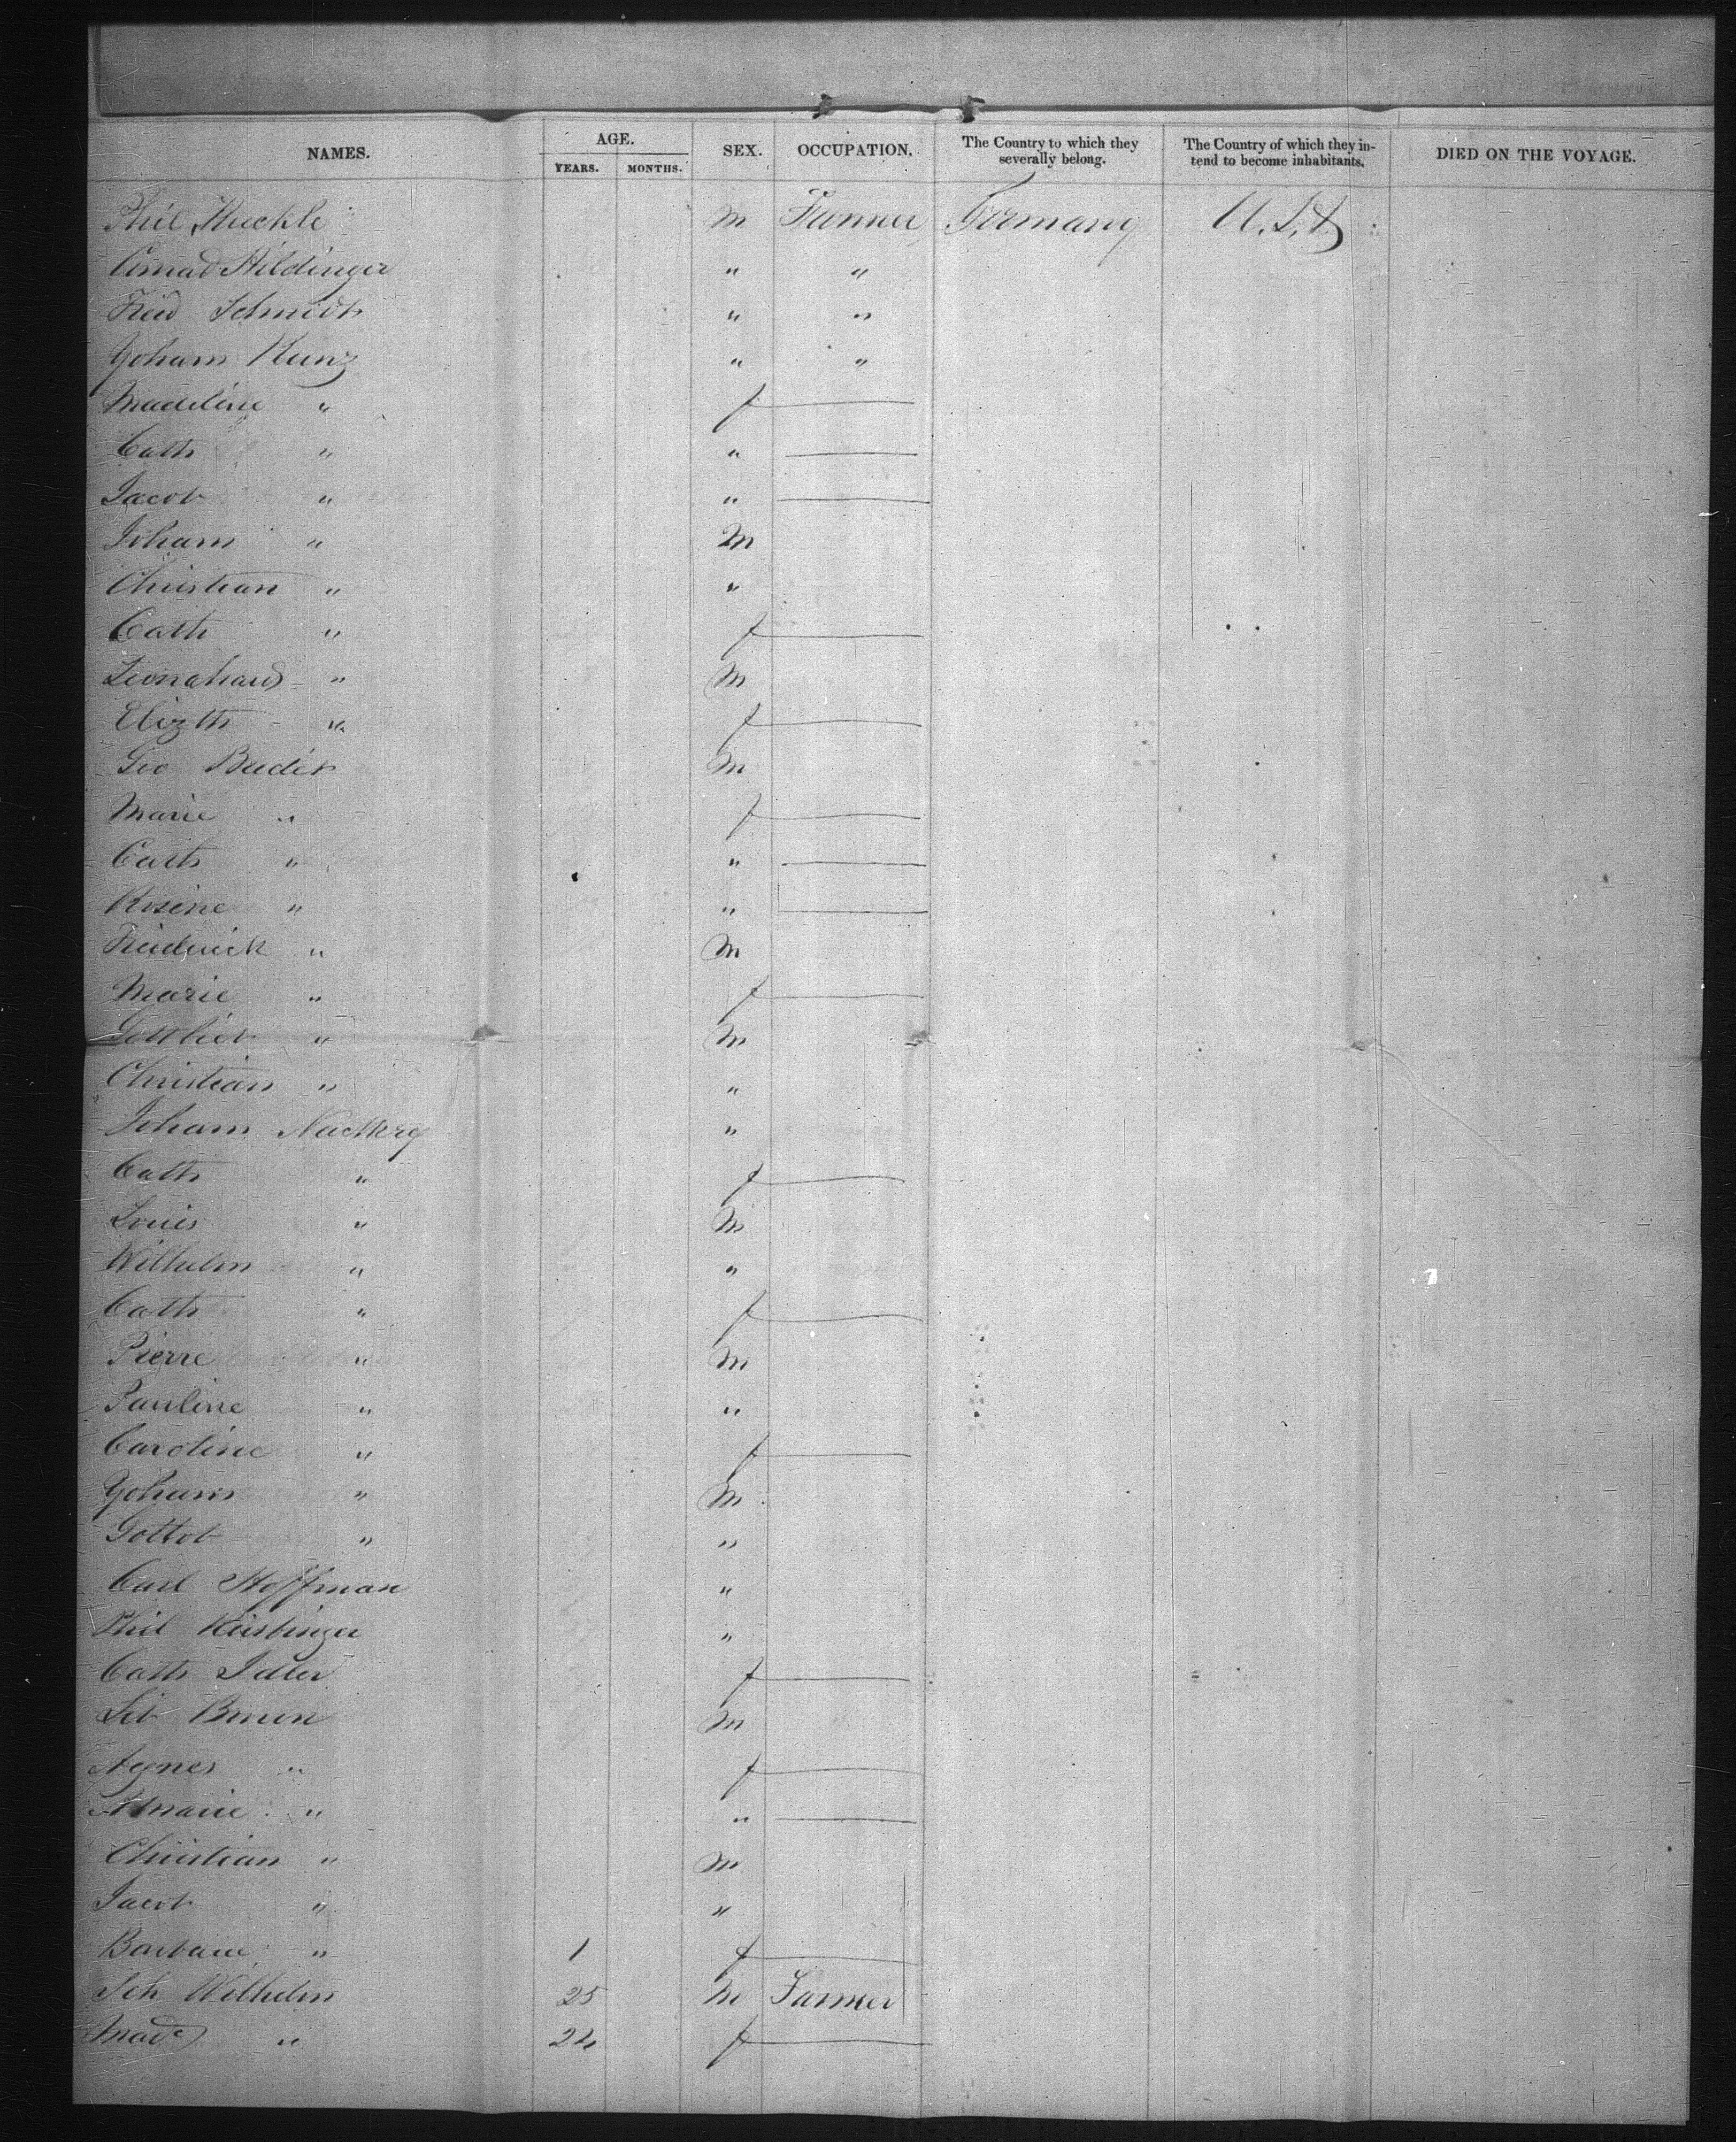 NAMES. AGE. YEARS. MONTHS. SEX. OCCUPATION. The Country to which they severally belong. The Country of which they in-tend to become inhabitants. DIED ON THE VOYAGE.
Phil Huckle m Farmer Germany U.S.
Conrad Hildinger " "
Fred Schmidt " "
Yoham Kunz " "
Madeline " f
Cath " "
Jacob " "
Joham " M
Christian " "
Cath " f
Leonahard " M
Elizth " f
Geo Bader M
Marie " f
Cath " "
Rosine " "
Frederick " M
Marie " f
Gottlieb " M
Christian " "
Joham "
Cath " f
Louis " M
Wilhelm " "
Cath " f
Pierre " M
Pauline " "
Caroline " f
Yoham " M
Gottob " "
Carl Hoffman "
Phil "
Cath Idler f
M
Agnes " f
Amarie " "
Christian " M
Jacob " "
Barbara " 1 f
Joh Wilhelm 25 m Farmer
Made " 24 f